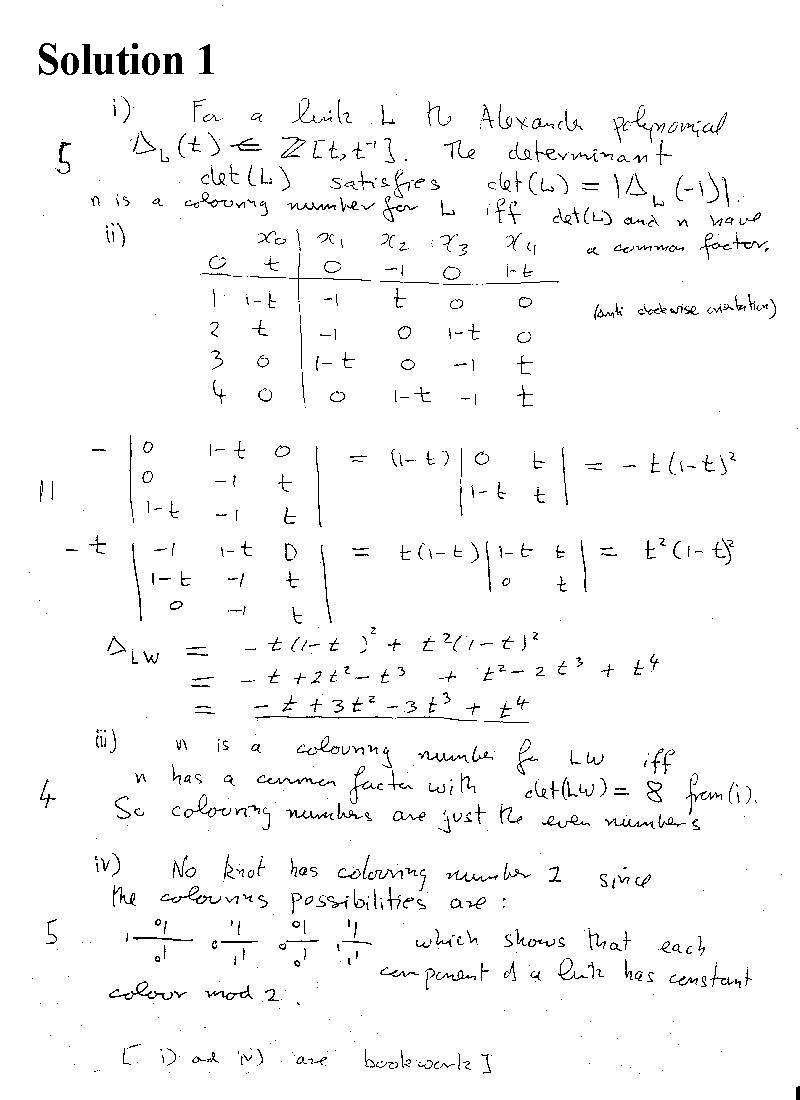 Solution 1
i) For a link L the Alexander polynomial
5 Δ_L(t) ∈ Z[t, t⁻¹]. The determinant
det(L) satisfies det(L) = |Δ_L(-1)|.
n is a colouring number for L iff det(L) and n have
ii) x₀ | x₁ x₂ x₃ x₄ a common factor.
0 t | 0 -1 0 1-t
1 1-t | -1 t 0 0 (anti clockwise orientation)
2 t | -1 0 1-t 0
3 0 | 1-t 0 -1 t
4 0 | 0 1-t -1 t
- | 0 1-t 0 | = (1-t) | 0 t | = - t(1-t)²
11 | 0 -1 t | | 1-t t |
| 1-t -1 t |
- t | -1 1-t 0 | = t(1-t) | 1-t t | = t²(1-t)²
| 1-t -1 t | | 0 t |
| 0 -1 t |
Δ_LW = - t(1-t)² + t²(1-t)²
= - t + 2t² - t³ + t² - 2t³ + t⁴
= - t + 3t² - 3t³ + t⁴
iii) n is a colouring number for LW iff
4 n has a common factor with det(LW) = 8 from (i).
So colouring numbers are just the even numbers
iv) No knot has colouring number 2 since
the colouring possibilities are :
5 which shows that each
component of a link has constant
colour mod 2.
[ i) and iv) are bookwork ]